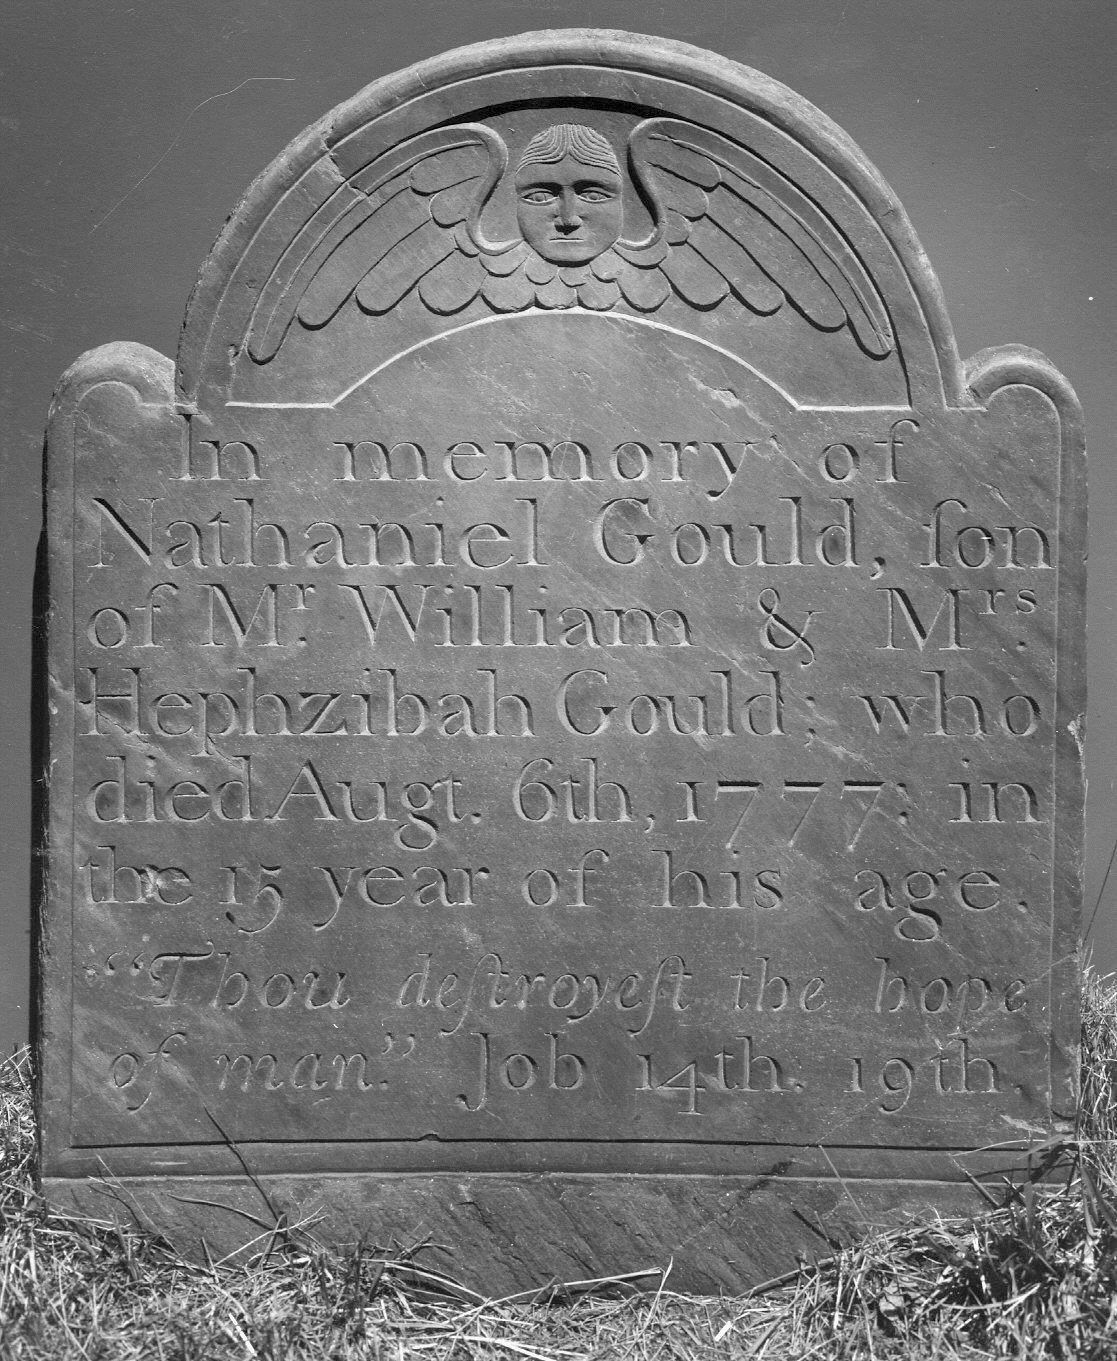 In memory of
Nathaniel Gould, ſon
of Mr. William & Mrs.
Hephzibah Gould; who
died Augt. 6th, 1777: in
the 15 year of his age.
“Thou deſtroyeſt the hope
of man.” Job 14th. 19th.